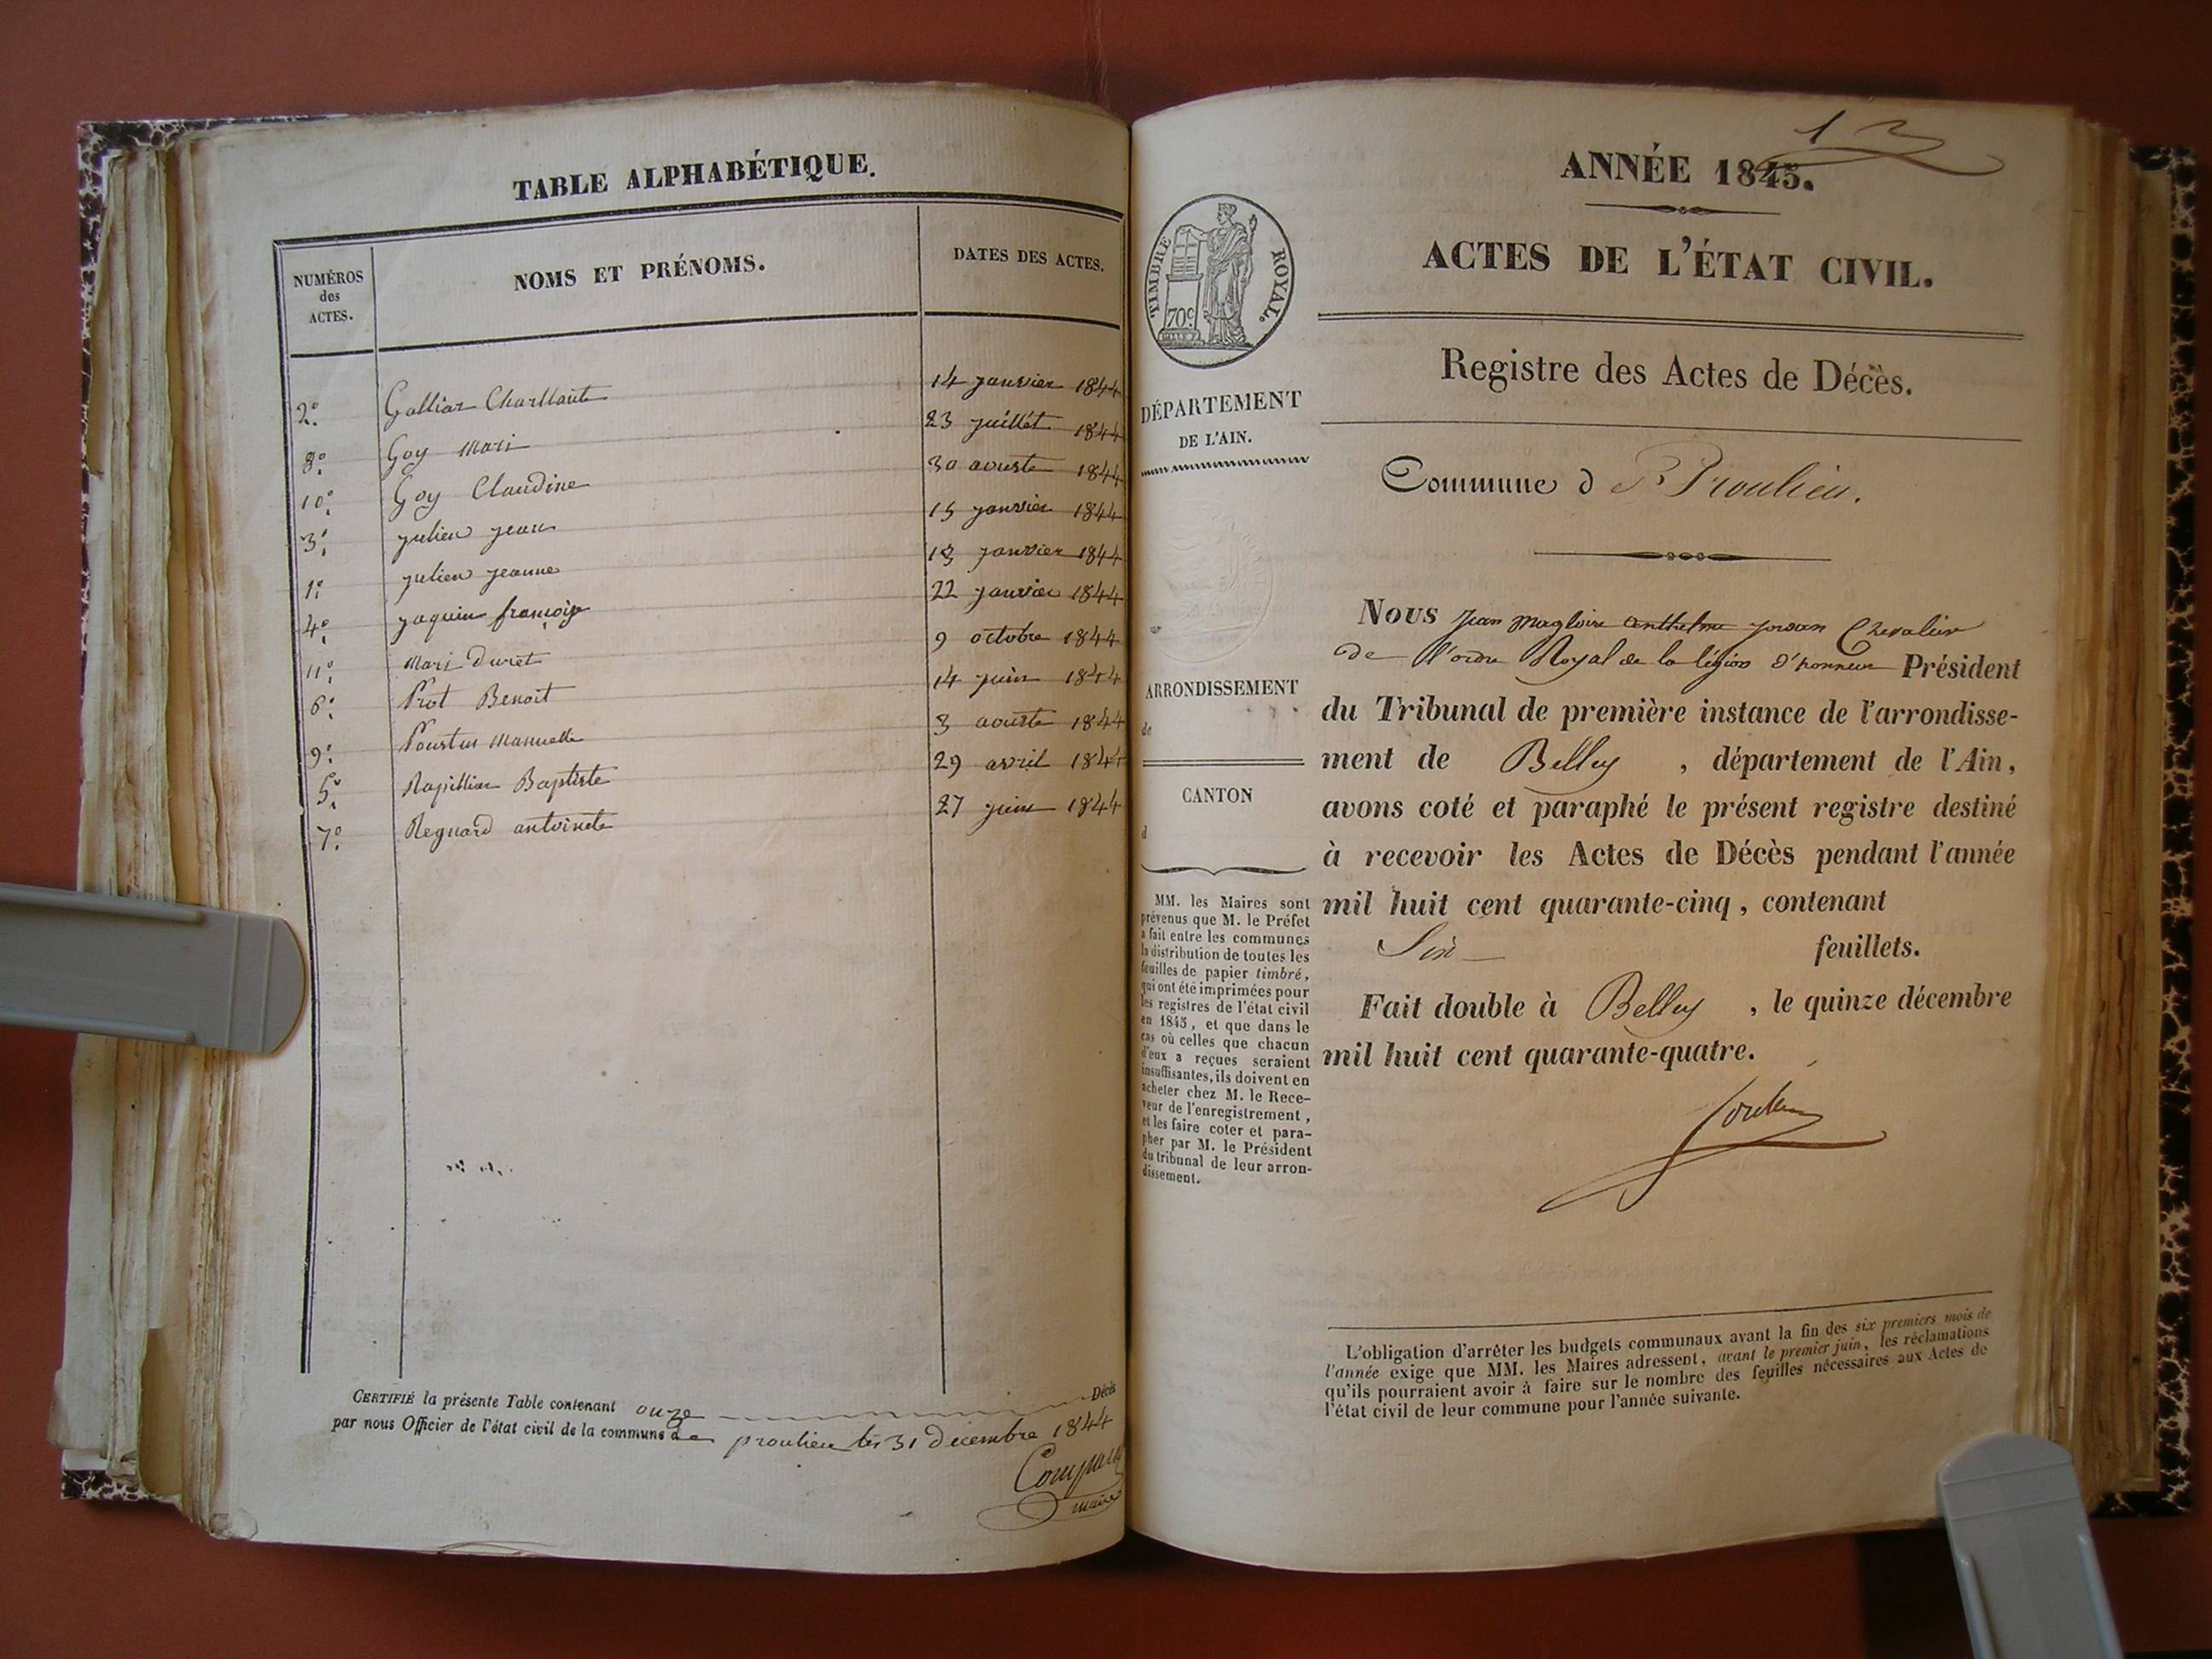 TABLE ALPHABÉTIQUE.
NUMÉROS des ACTES. NOMS ET PRÉNOMS. DATES DES ACTES.
2° Galliar Charllaute 14 janvier 1844
8° Goy mari 23 juillét 1844
10° Goy Claudine 30 aouste 1844
3° julien jean 15 janvier 1844
1° julien jeanne 13 janvier 1844
4° jaquin françoise 22 janvier 1844
11° mari Duret 9 octobre 1844
6° Prot Benoit 14 juin 1844
9° manuelle 3 aouste 1844
5° Rapillian Baptiste 29 avril 1844
7° Regnard antoinete 27 juin 1844
CERTIFIÉ la présente Table contenant onze Décès
par nous Officier de l'état civil de la commune de proulieu les 31 Decembre 1844
maire
ANNÉE 1845.
ACTES DE L'ÉTAT CIVIL.
Registre des Actes de Décès.
TIMBRE ROYAL.
70c
DÉPARTEMENT
DE L'AIN.
Commune d Proulieu.
Nous Jean Magloire anthelme jordan Chevalier
de l'ordre Royal de la légion d'honneur Président
du Tribunal de première instance de l'arrondisse-
ment de Belley, département de l'Ain,
avons coté et paraphé le présent registre destiné
à recevoir les Actes de Décès pendant l'année
mil huit cent quarante-cinq, contenant
Six feuillets.
Fait double à Belley, le quinze décembre
mil huit cent quarante-quatre.
Jordan
ARRONDISSEMENT
de
CANTON
d
MM. les Maires sont
prévenus que M. le Préfet
a fait entre les communes
la distribution de toutes les
feuilles de papier timbré,
qui ont été imprimées pour
les registres de l'état civil
en 1845, et que dans le
cas où celles que chacun
d'eux a reçues seraient
insuffisantes, ils doivent en
acheter chez M. le Rece-
veur de l'enregistrement,
et les faire coter et para-
pher par M. le Président
du tribunal de leur arron-
dissement.
L'obligation d'arrêter les budgets communaux avant la fin des six premiers mois de
l'année exige que MM. les Maires adressent, avant le premier juin, les réclamations
qu'ils pourraient avoir à faire sur le nombre des feuilles nécessaires aux Actes de
l'état civil de leur commune pour l'année suivante.